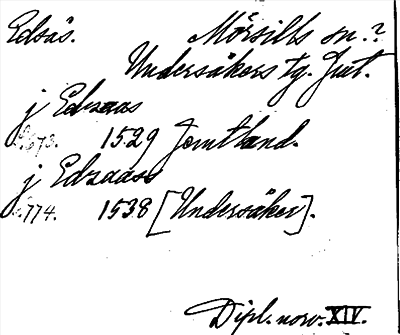 Edsås. Mörsills sn.?
Undersåkers tg. Jmt.
j Edzaas
s. 673. 1529 Jemtland.
j Edzaass
s. 774. 1538 [Undersåker].
Dipl. norv. XIV.